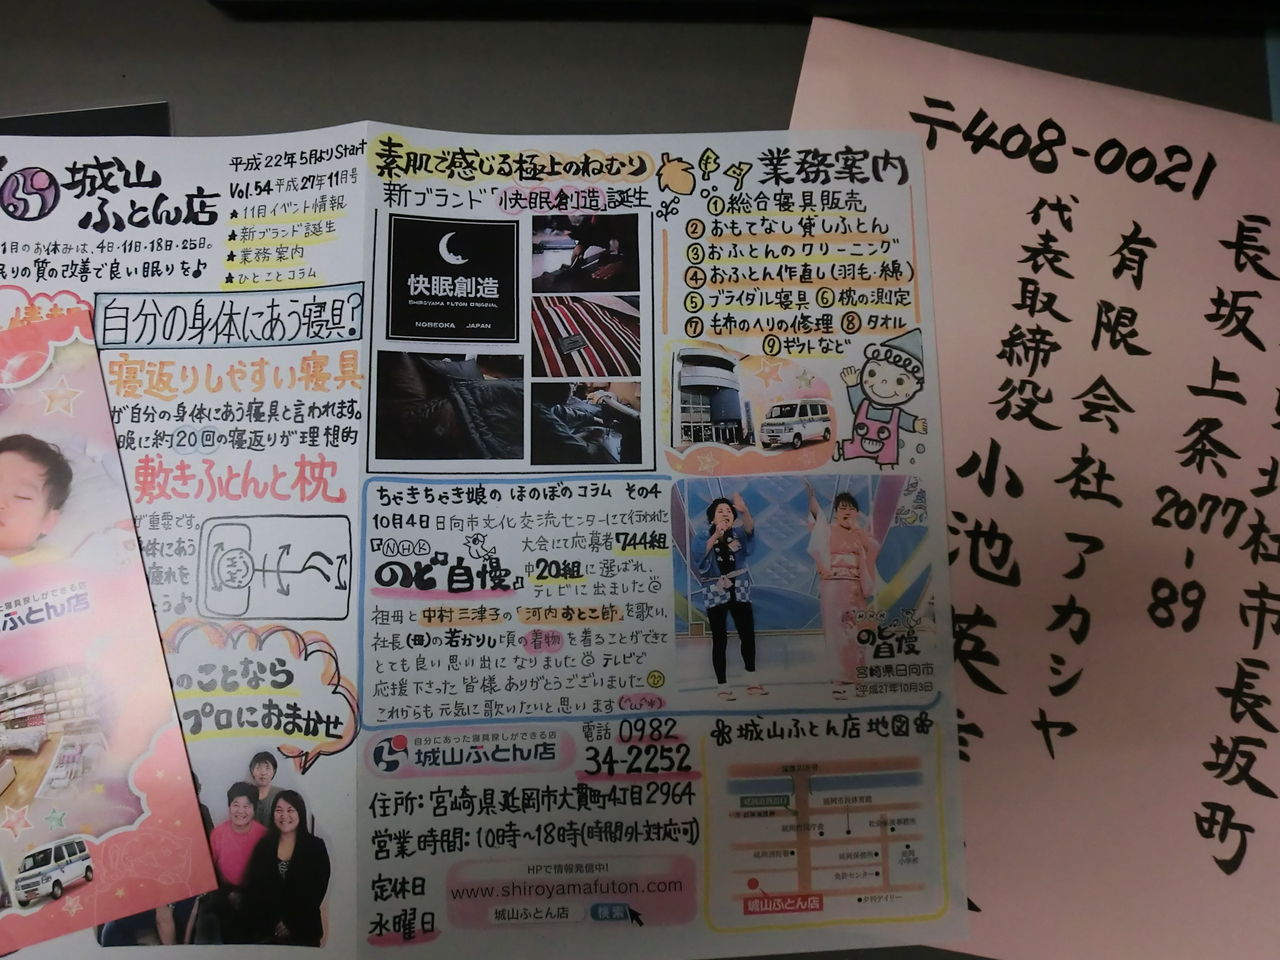 城山
ふとん店
平成22年5月よりStart
Vol.54 平成27年11月号
★11月イベント情報
★新ブランド誕生
★業務案内
★ひとことコラム
1月のお休みは、4日・11日・18日・25日。
眠りの質の改善で良い眠りを♪
自分の身体にあう寝具?
寝返りしやすい寝具
が自分の身体にあう寝具と言われます。
晩に約20回の寝返りが理想的
敷きふとんと枕
が重要です。
のことなら
プロにおまかせ
ふとん店
素肌で感じる極上のねむり
新ブランド「快眠創造」誕生
快眠創造
SHIROYAMA FUTON ORIGINAL
NOBEOKA JAPAN
業務案内
①総合寝具販売
②おもてなし貸しふとん
③おふとんのクリーニング
④おふとん作直し(羽毛・綿)
⑤ブライダル寝具 ⑥枕の測定
⑦毛布のへりの修理 ⑧タオル
⑨ギフトなど
ちゃきちゃき娘の ほのぼのコラム その4
10月4日日向市文化交流センターにて行われた
『NHK
のど自慢』
大会にて応募者744組
中20組に選ばれ、
テレビに出ました
祖母と中村三津子の「河内おとこ節」を歌い、
社長(母)の若かりし頃の着物を着ることができて
とても良い思い出になりました テレビで
応援下さった皆様ありがとうございました
これからも元気に歌いたいと思います(^ω^*)
NHK
のど自慢
宮崎県日向市
平成27年10月3日
自分にあった寝具探しができる店
城山ふとん店
電話 0982
34-2252
住所:宮崎県延岡市大貫町4丁目2964
営業時間:10時〜18時(時間外対応可)
定休日
水曜日
HPで情報発信中!
www.shiroyamafuton.com
城山ふとん店 検索
城山ふとん店 地図
城山ふとん店
〒408-0021
長坂上条2077-89
北杜市長坂町
有限会社アカシヤ
代表取締役 小池英